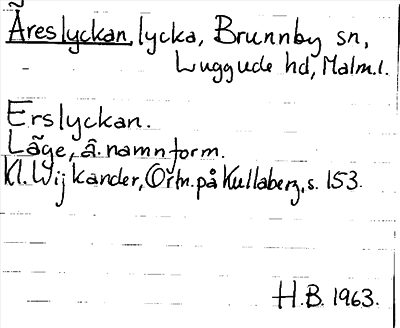 Åreslyckan, lycka, Brunnby sn,
Luggude hd, Malm.l.
Erslyckan.
Läge, â. namnform.
Kl. Wijkander, Ortn. på Kullaberg, s. 153.
H.B. 1963.